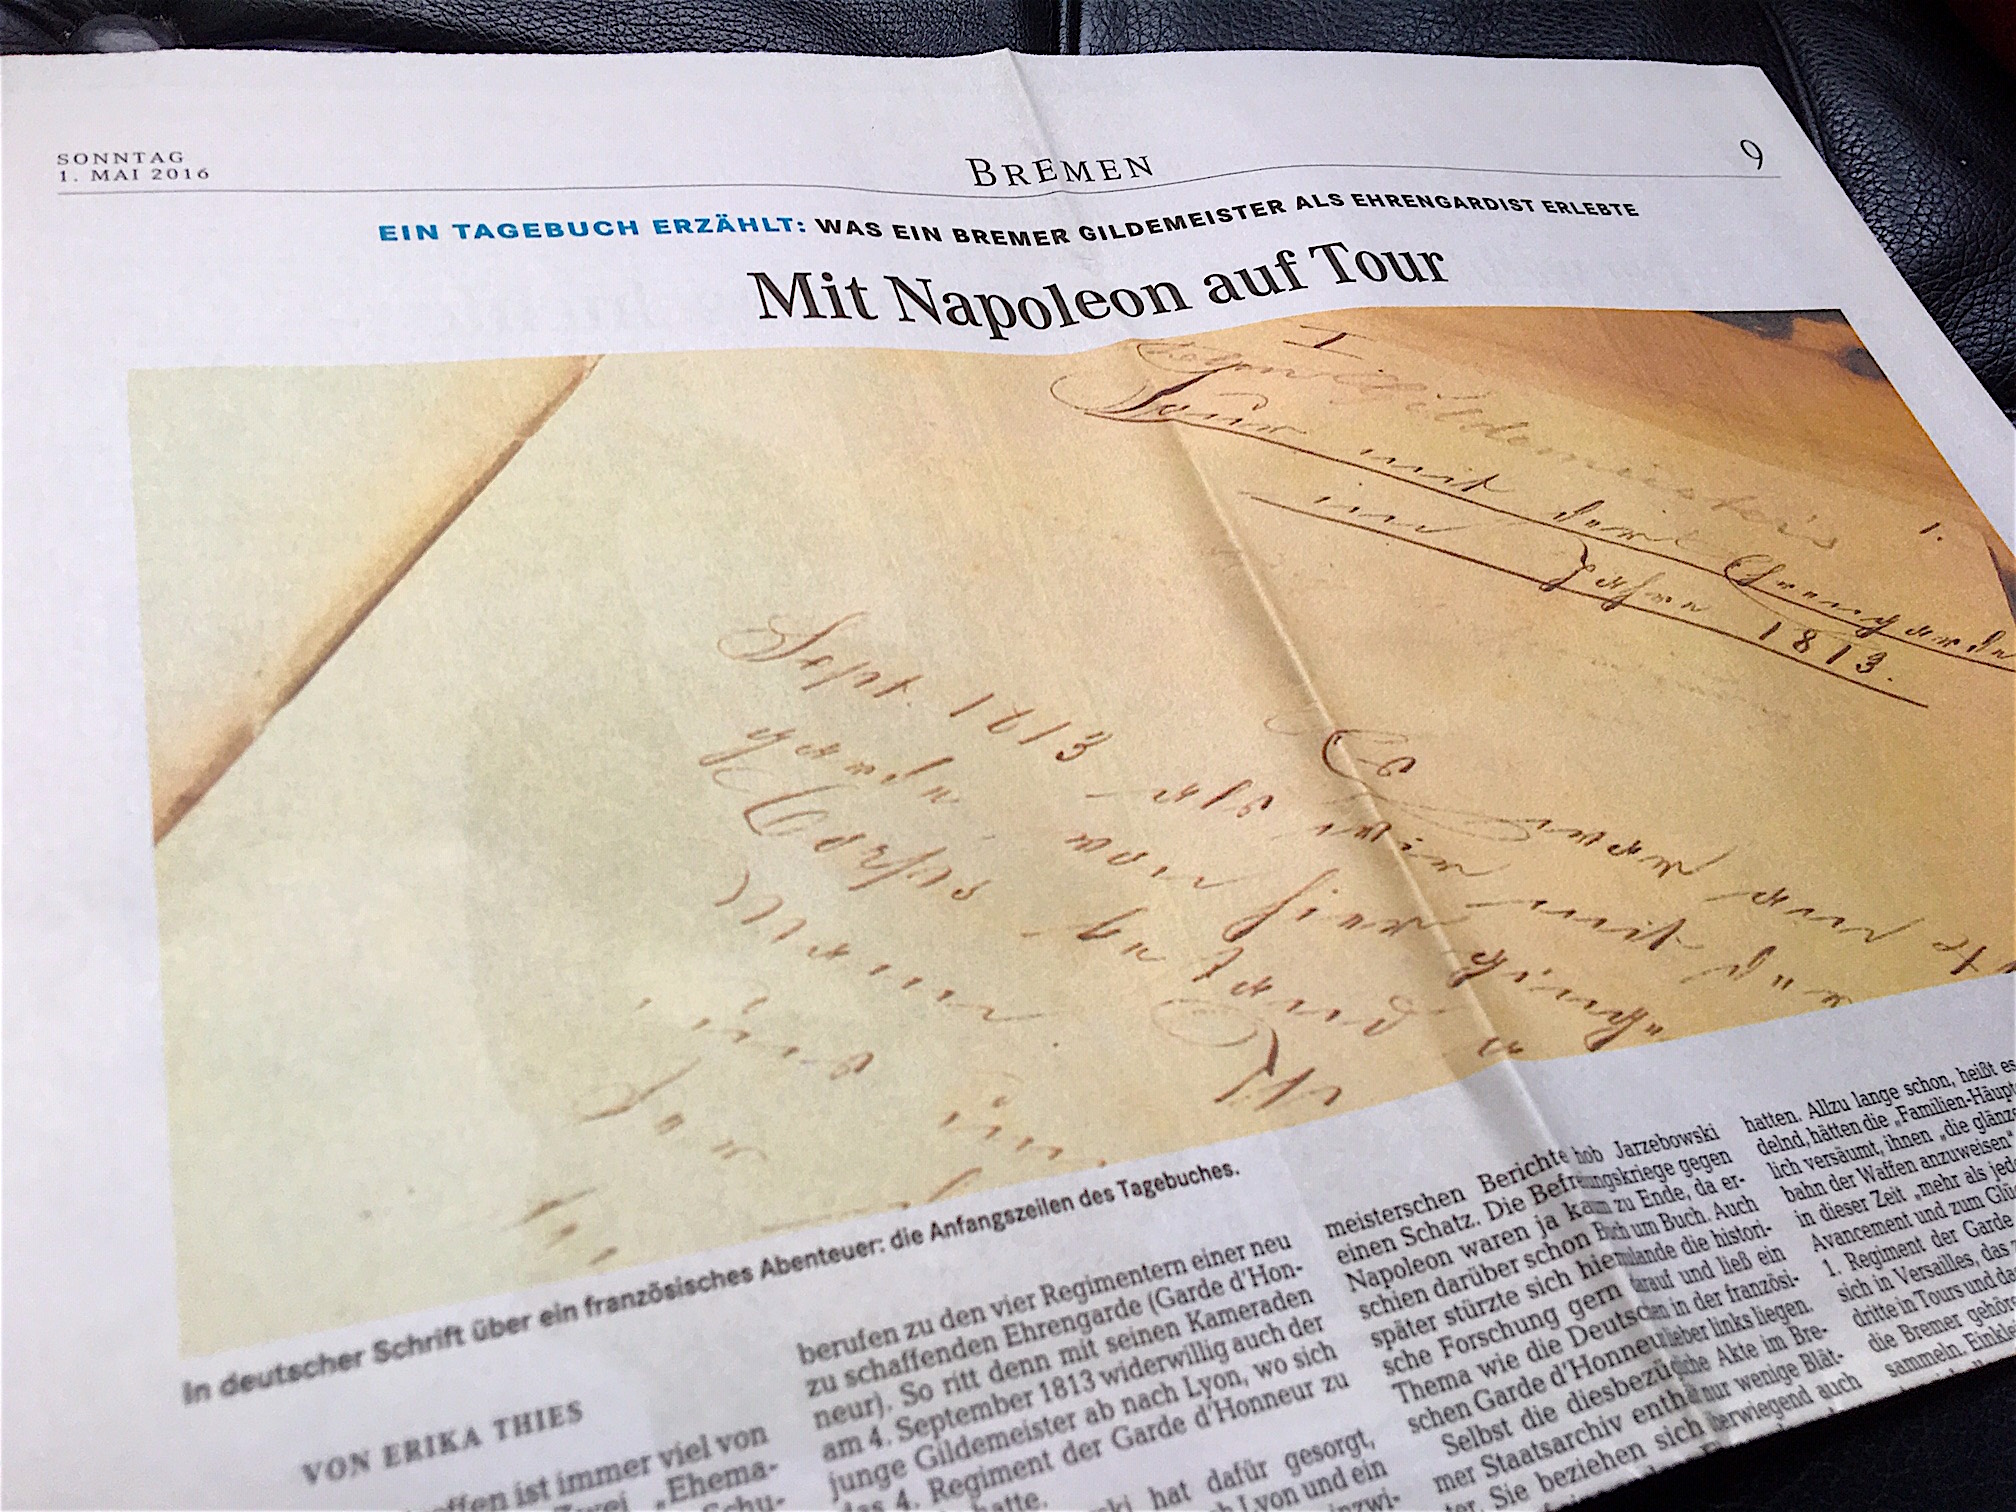 SONNTAG
1. MAI 2016
BREMEN
9
EIN TAGEBUCH ERZÄHLT: WAS EIN BREMER GILDEMEISTER ALS EHRENGARDIST ERLEBTE
Mit Napoleon auf Tour
I
Gildemeister's
1.
Tour mit der Ehrengarde
im Jahre 1813.
Es war am
Sept. 1813 – als wir mit
garde von hier
Corps
In deutscher Schrift über ein französisches Abenteuer: die Anfangszeilen des Tagebuches.
VON ERIKA THIES
ist immer viel von
„Ehema-
Schu-
berufen zu den vier Regimentern einer neu
zu schaffenden Ehrengarde (Garde d'Hon-
neur). So ritt denn mit seinen Kameraden
am 4. September 1813 widerwillig auch der
junge Gildemeister ab nach Lyon, wo sich
das 4. Regiment der Garde d'Honneur zu
hatte.
hat dafür gesorgt,
Lyon und ein
meisterschen Berichte hob Jarzebowski
einen Schatz. Die Befreiungskriege gegen
Napoleon waren ja kaum zu Ende, da er-
schien darüber schon Buch um Buch. Auch
später stürzte sich hierzulande die histori-
sche Forschung gern darauf und ließ ein
Thema wie die Deutschen in der französi-
schen Garde d'Honneur lieber links liegen.
Selbst die diesbezügliche Akte im Bre-
mer Staatsarchiv enthält nur wenige Blät-
ter. Sie beziehen sich überwiegend auch
hatten. Allzu lange schon, heißt es
delnd, hätten die „Familien-Häup
lich versäumt, ihnen „die glänz
bahn der Waffen anzuweisen“
in dieser Zeit „mehr als jed
Avancement und zum Glü
1. Regiment der Garde
sich in Versailles, das
dritte in Tours und da
die Bremer gehör
sammeln. Einkle